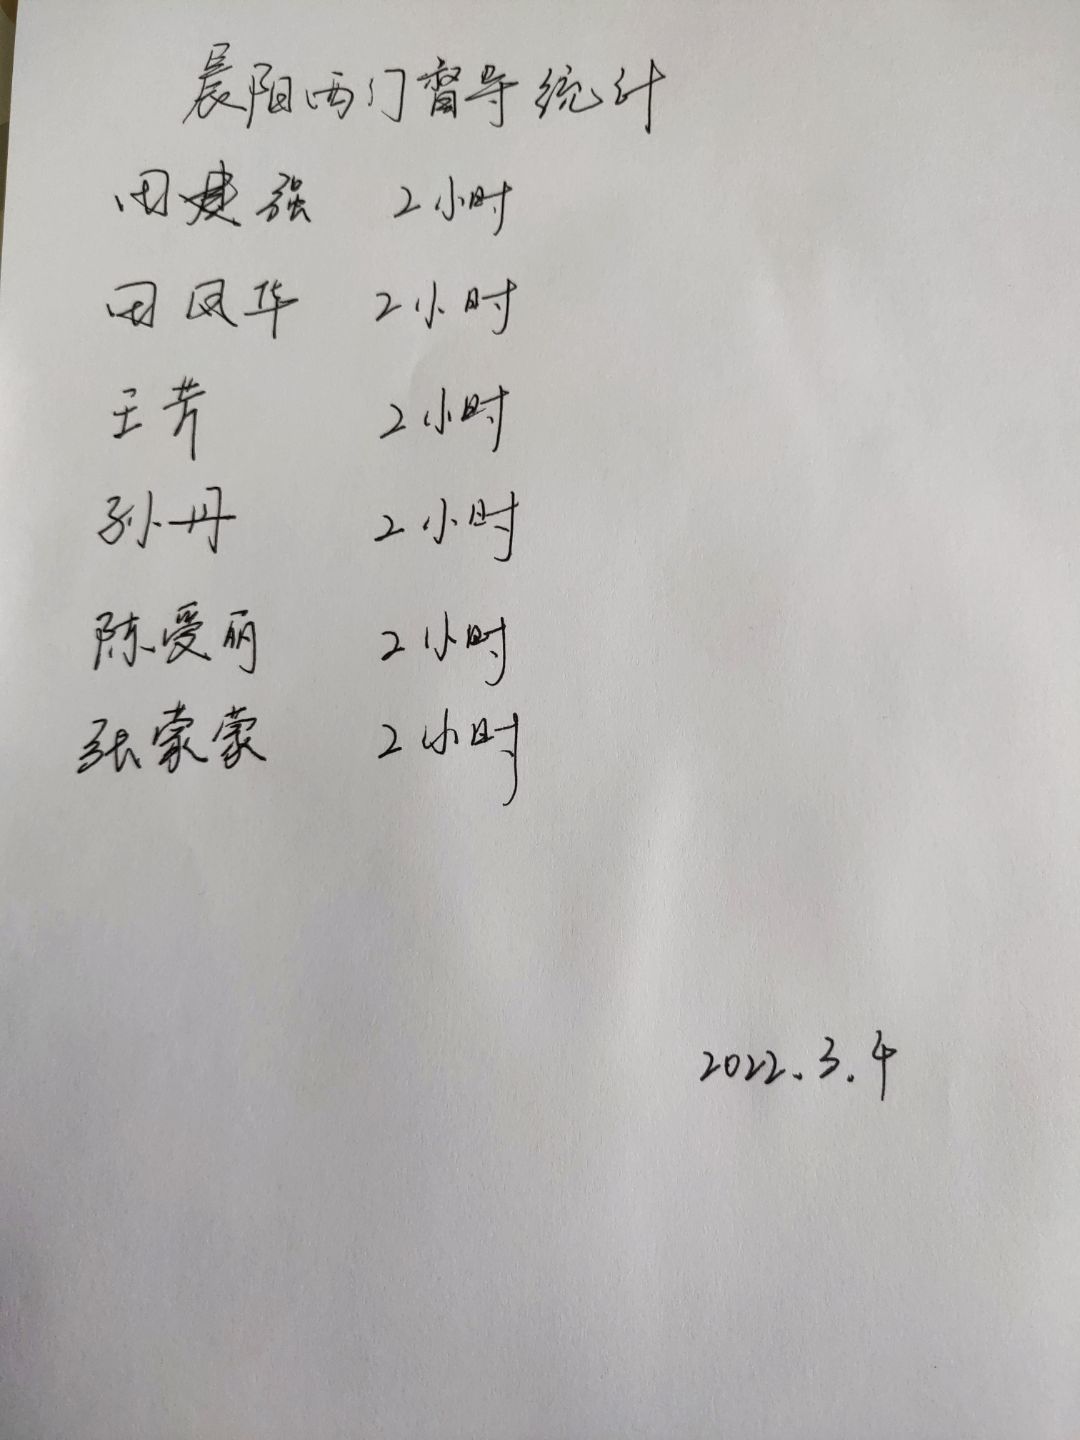 晨阳西门督导统计
田建强 2小时
田凤华 2小时
王芳 2小时
孙丹 2小时
陈爱丽 2小时
张蒙蒙 2小时
2022.3.4